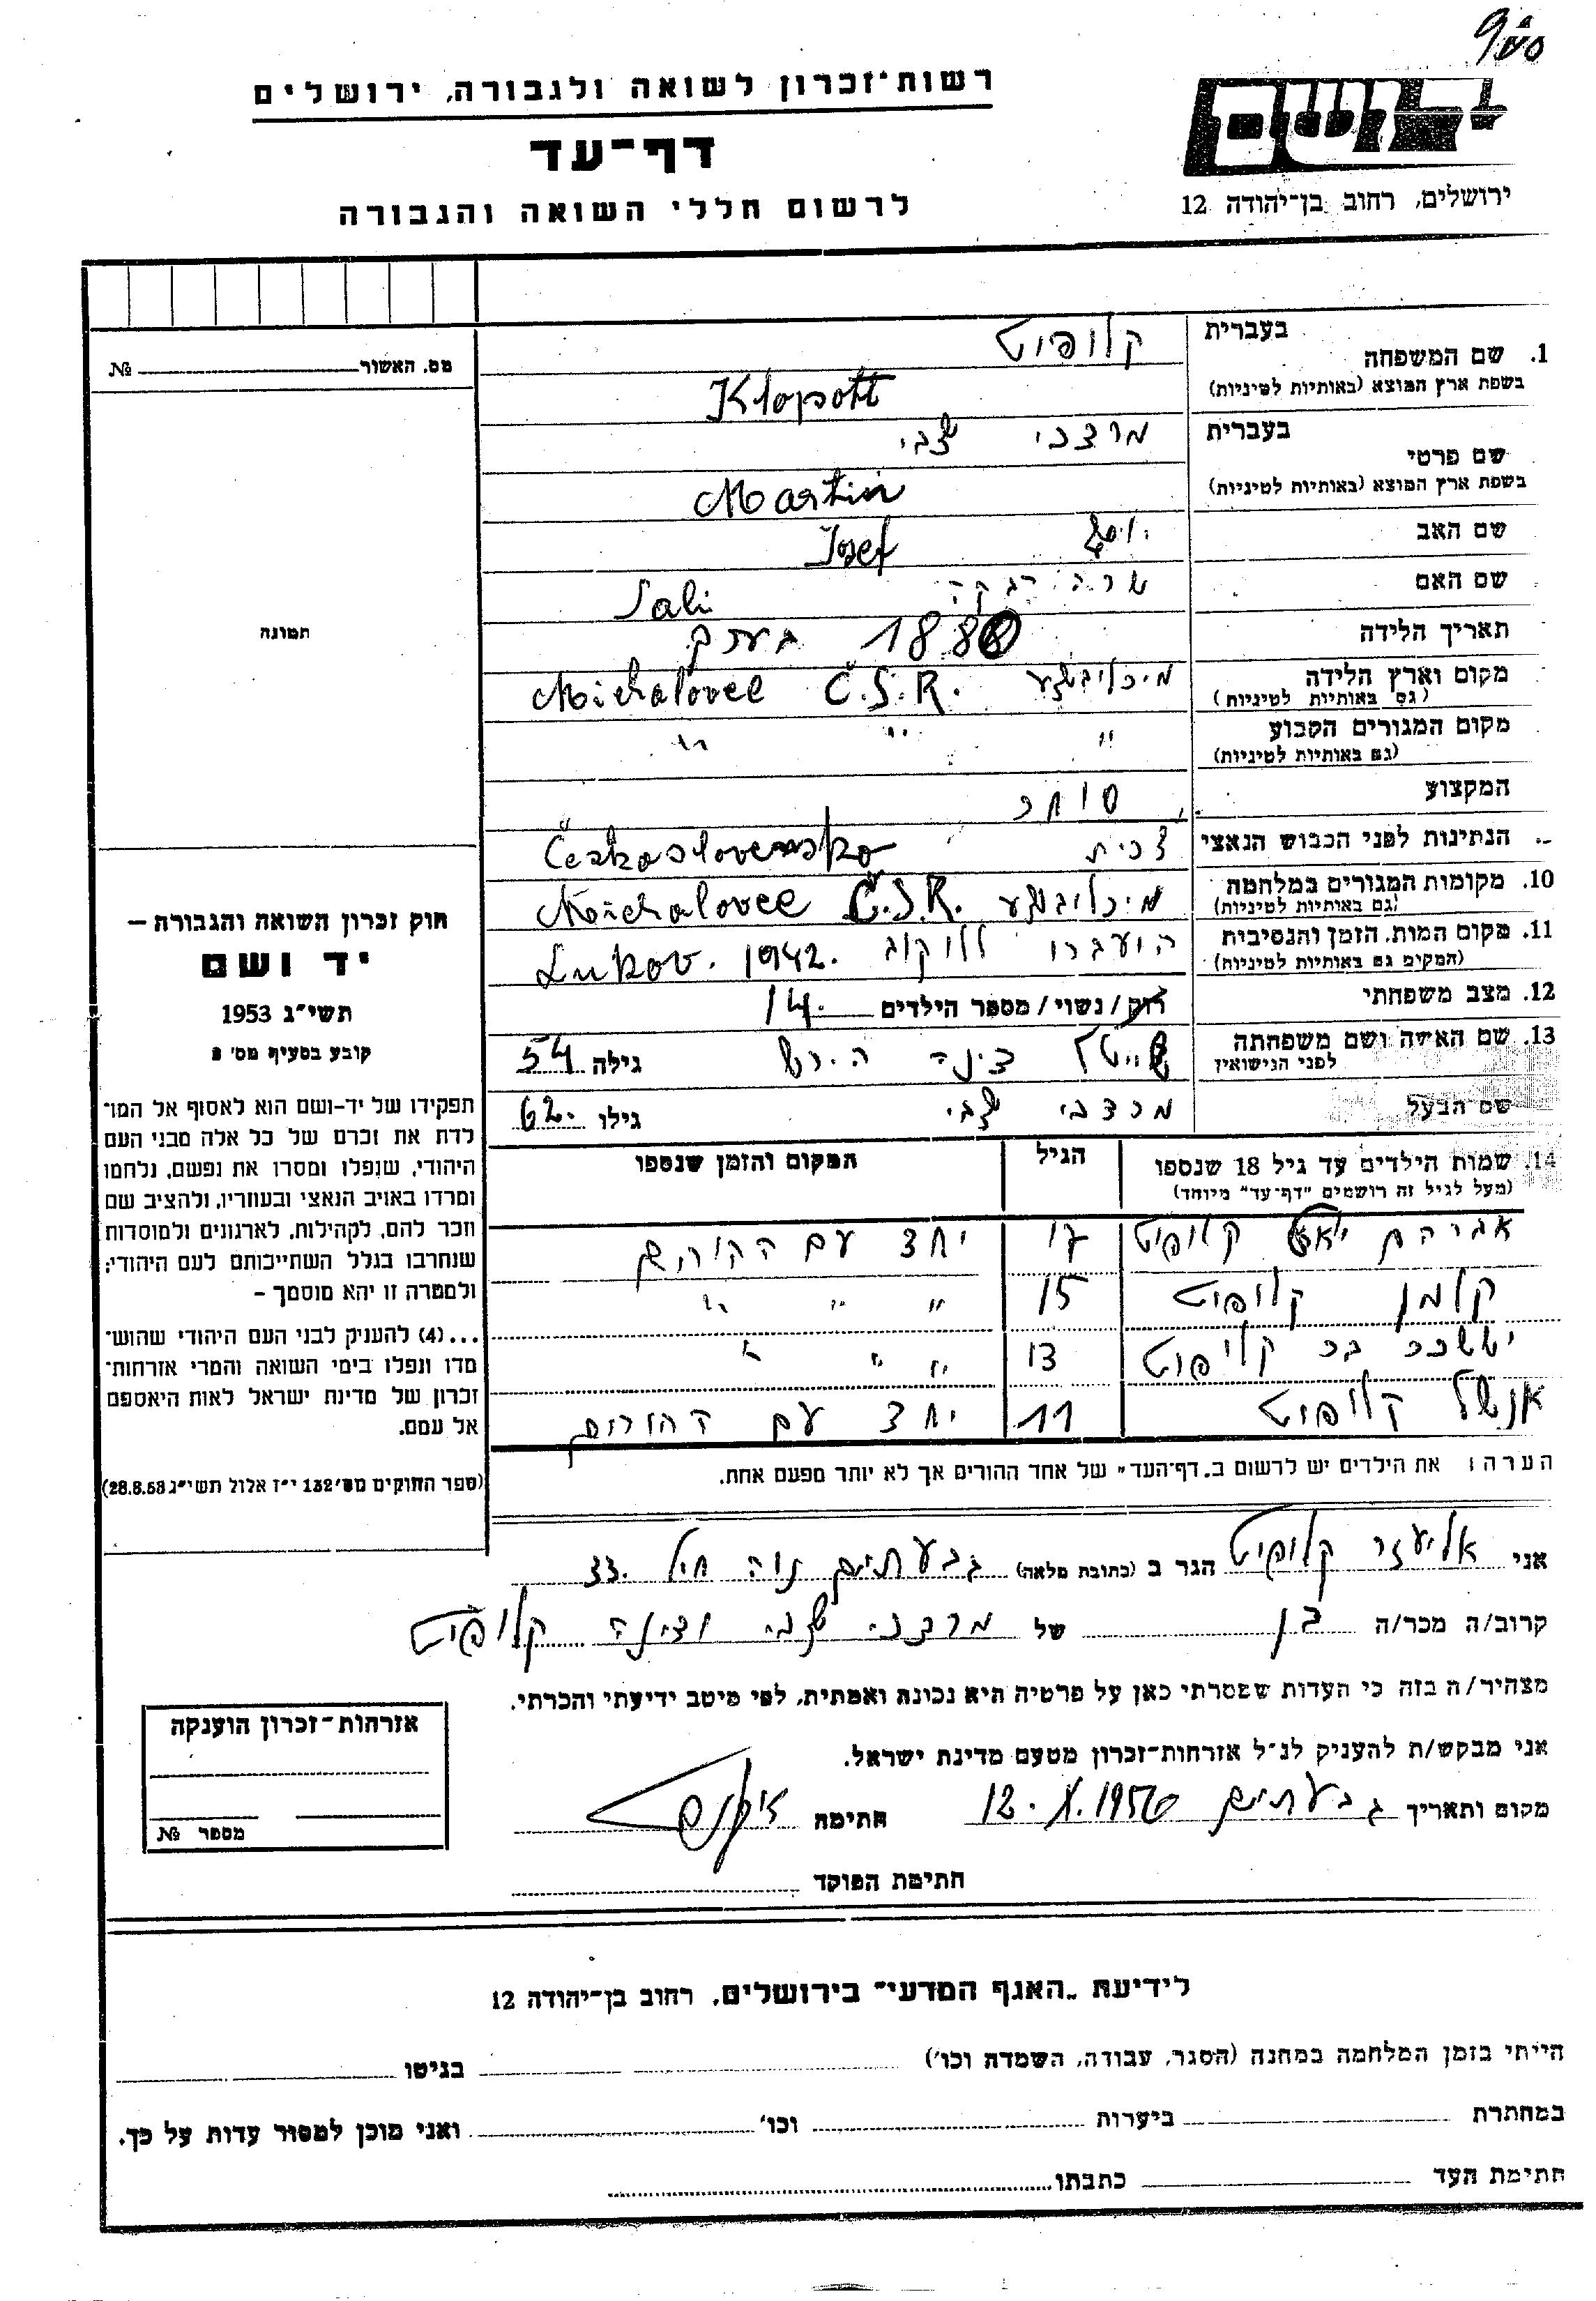 רשות־זכרון לשואה ולגבורה, ירושלים
דף־עד
לרשום חללי השואה והגבורה
יד ושם
ירושלים, רחוב בן־יהודה 12
מס. האשור № 
תמונה
1. שם המשפחה בעברית קלופוט
בשפת ארץ המוצא (באותיות לטיניות) Klopott
שם פרטי בעברית מרדכי צבי
בשפת ארץ המוצא (באותיות לטיניות) Martin
שם האב יוסף Josef
שם האם שרה רבקה Sali
תאריך הלידה 1880 בערך
מקום וארץ הלידה
(גם באותיות לטיניות) Michalovce Č.S.R.
מקום המגורים הקבוע " " "
(גם באותיות לטיניות)
המקצוע סוחר
הנתינות לפני הכבוש הנאצי צ'כית Československo
10. מקומות המגורים במלחמה
(גם באותיות לטיניות) Michalovce Č.S.R.
11. מקום המות, הזמן והנסיבות הועברו ללוקוב Lukov. 1942.
(המקום גם באותיות לטיניות)
12. מצב משפחתי רוק/נשוי/מספר הילדים 14.
13. שם האשה ושם משפחתה שיינדל דינה הירש גילה 54
לפני הנישואין
שם הבעל מרדכי צבי גילו 62.
14. שמות הילדים עד גיל 18 שנספו הגיל המקום והזמן שנספו
(מעל לגיל זה רושמים "דף־עד" מיוחד)
אברהם קלופוט 17 יחד עם ההורים
קלמן קלופוט 15 " " "
יששכר בר קלופוט 13 " " "
אנשל קלופוט 11 יחד עם ההורים
הערה: את הילדים יש לרשום ב„דף־העד" של אחד ההורים אך לא יותר מפעם אחת.
חוק זכרון השואה והגבורה –
יד ושם
תשי"ג 1953
קובע בסעיף מס' 2
תפקידו של יד-ושם הוא לאסוף אל המו־
לדת את זכרם של כל אלה מבני העם
היהודי, שנפלו ומסרו את נפשם, נלחמו
ומרדו באויב הנאצי ובעוזריו, ולהציב שם
וזכר להם, לקהילות, לארגונים ולמוסדות
שנחרבו בגלל השתייכותם לעם היהודי;
ולמטרה זו יהא מוסמך –
...(4) להעניק לבני העם היהודי שהוש־
מדו ונפלו בימי השואה והמרי אזרחות־
זכרון של מדינת ישראל לאות היאספם
אל עמם.
(ספר החוקים מס' 132 י"ז אלול תשי"ג 28.8.53)
אני אליעזר קלופוט הגר ב (כתובת מלאה) גבעתיים נוה חיל 33.
קרוב/ה מכר/ה בן של מרדכי צבי ודינה קלופוט
מצהיר/ה בזה כי העדות שמסרתי כאן על פרטיה היא נכונה ואמתית, לפי מיטב ידיעתי והכרתי.
אני מבקש/ת להעניק לנ"ל אזרחות־זכרון מטעם מדינת ישראל.
מקום ותאריך גבעתיים 12.X.1956 חתימה
חתימת הפוקד
אזרחות־זכרון הוענקה
מספר №
לידיעת „האגף המדעי" בירושלים, רחוב בן־יהודה 12
הייתי בזמן המלחמה במחנה (הסגר, עבודה, השמדה וכו') בגיטו
במחתרת ביערות וכו' ואני מוכן למסור עדות על כך.
חתימת העד כתבתו